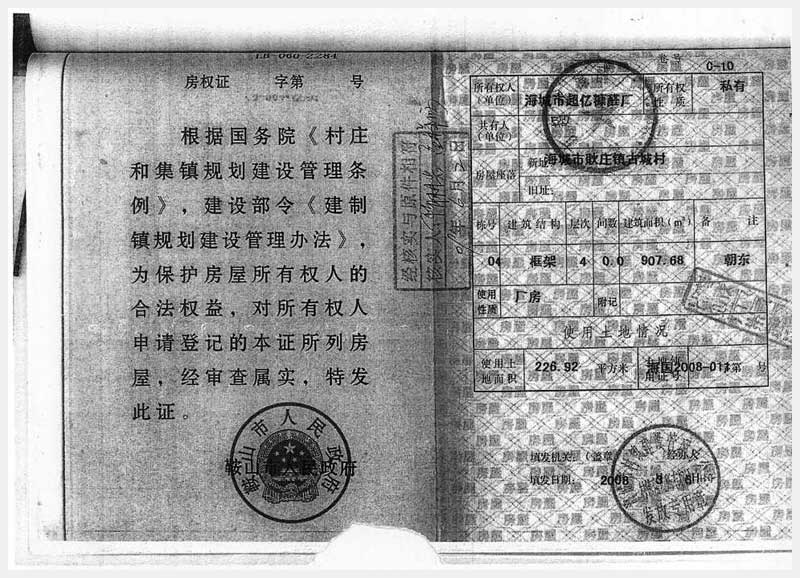 LB-060-2284
房权证 字第 号
根据国务院《村庄
和集镇规划建设管理条
例》，建设部令《建制
镇规划建设管理办法》，
为保护房屋所有权人的
合法权益，对所有权人
申请登记的本证所列房
屋，经审查属实，特发
此证。
鞍山市人民政府
鞍山市人民政府
经核实与原件相符
核实人：
0-10
所有权人（单位） 海城市超亿糠醛厂 所有权性质 私有
共有人（单位）
房屋座落 新址 海城市耿庄镇古城村
旧址：
栋号 建筑结构 层次 间数 建筑面积(m²) 备注
04 框架 4 0.0 907.68 朝东
使用性质 厂房 附记
使用土地情况
使用土地面积 226.92 平方米 海国2008-011第 号
填发机关：（盖章）
填发日期： 2008